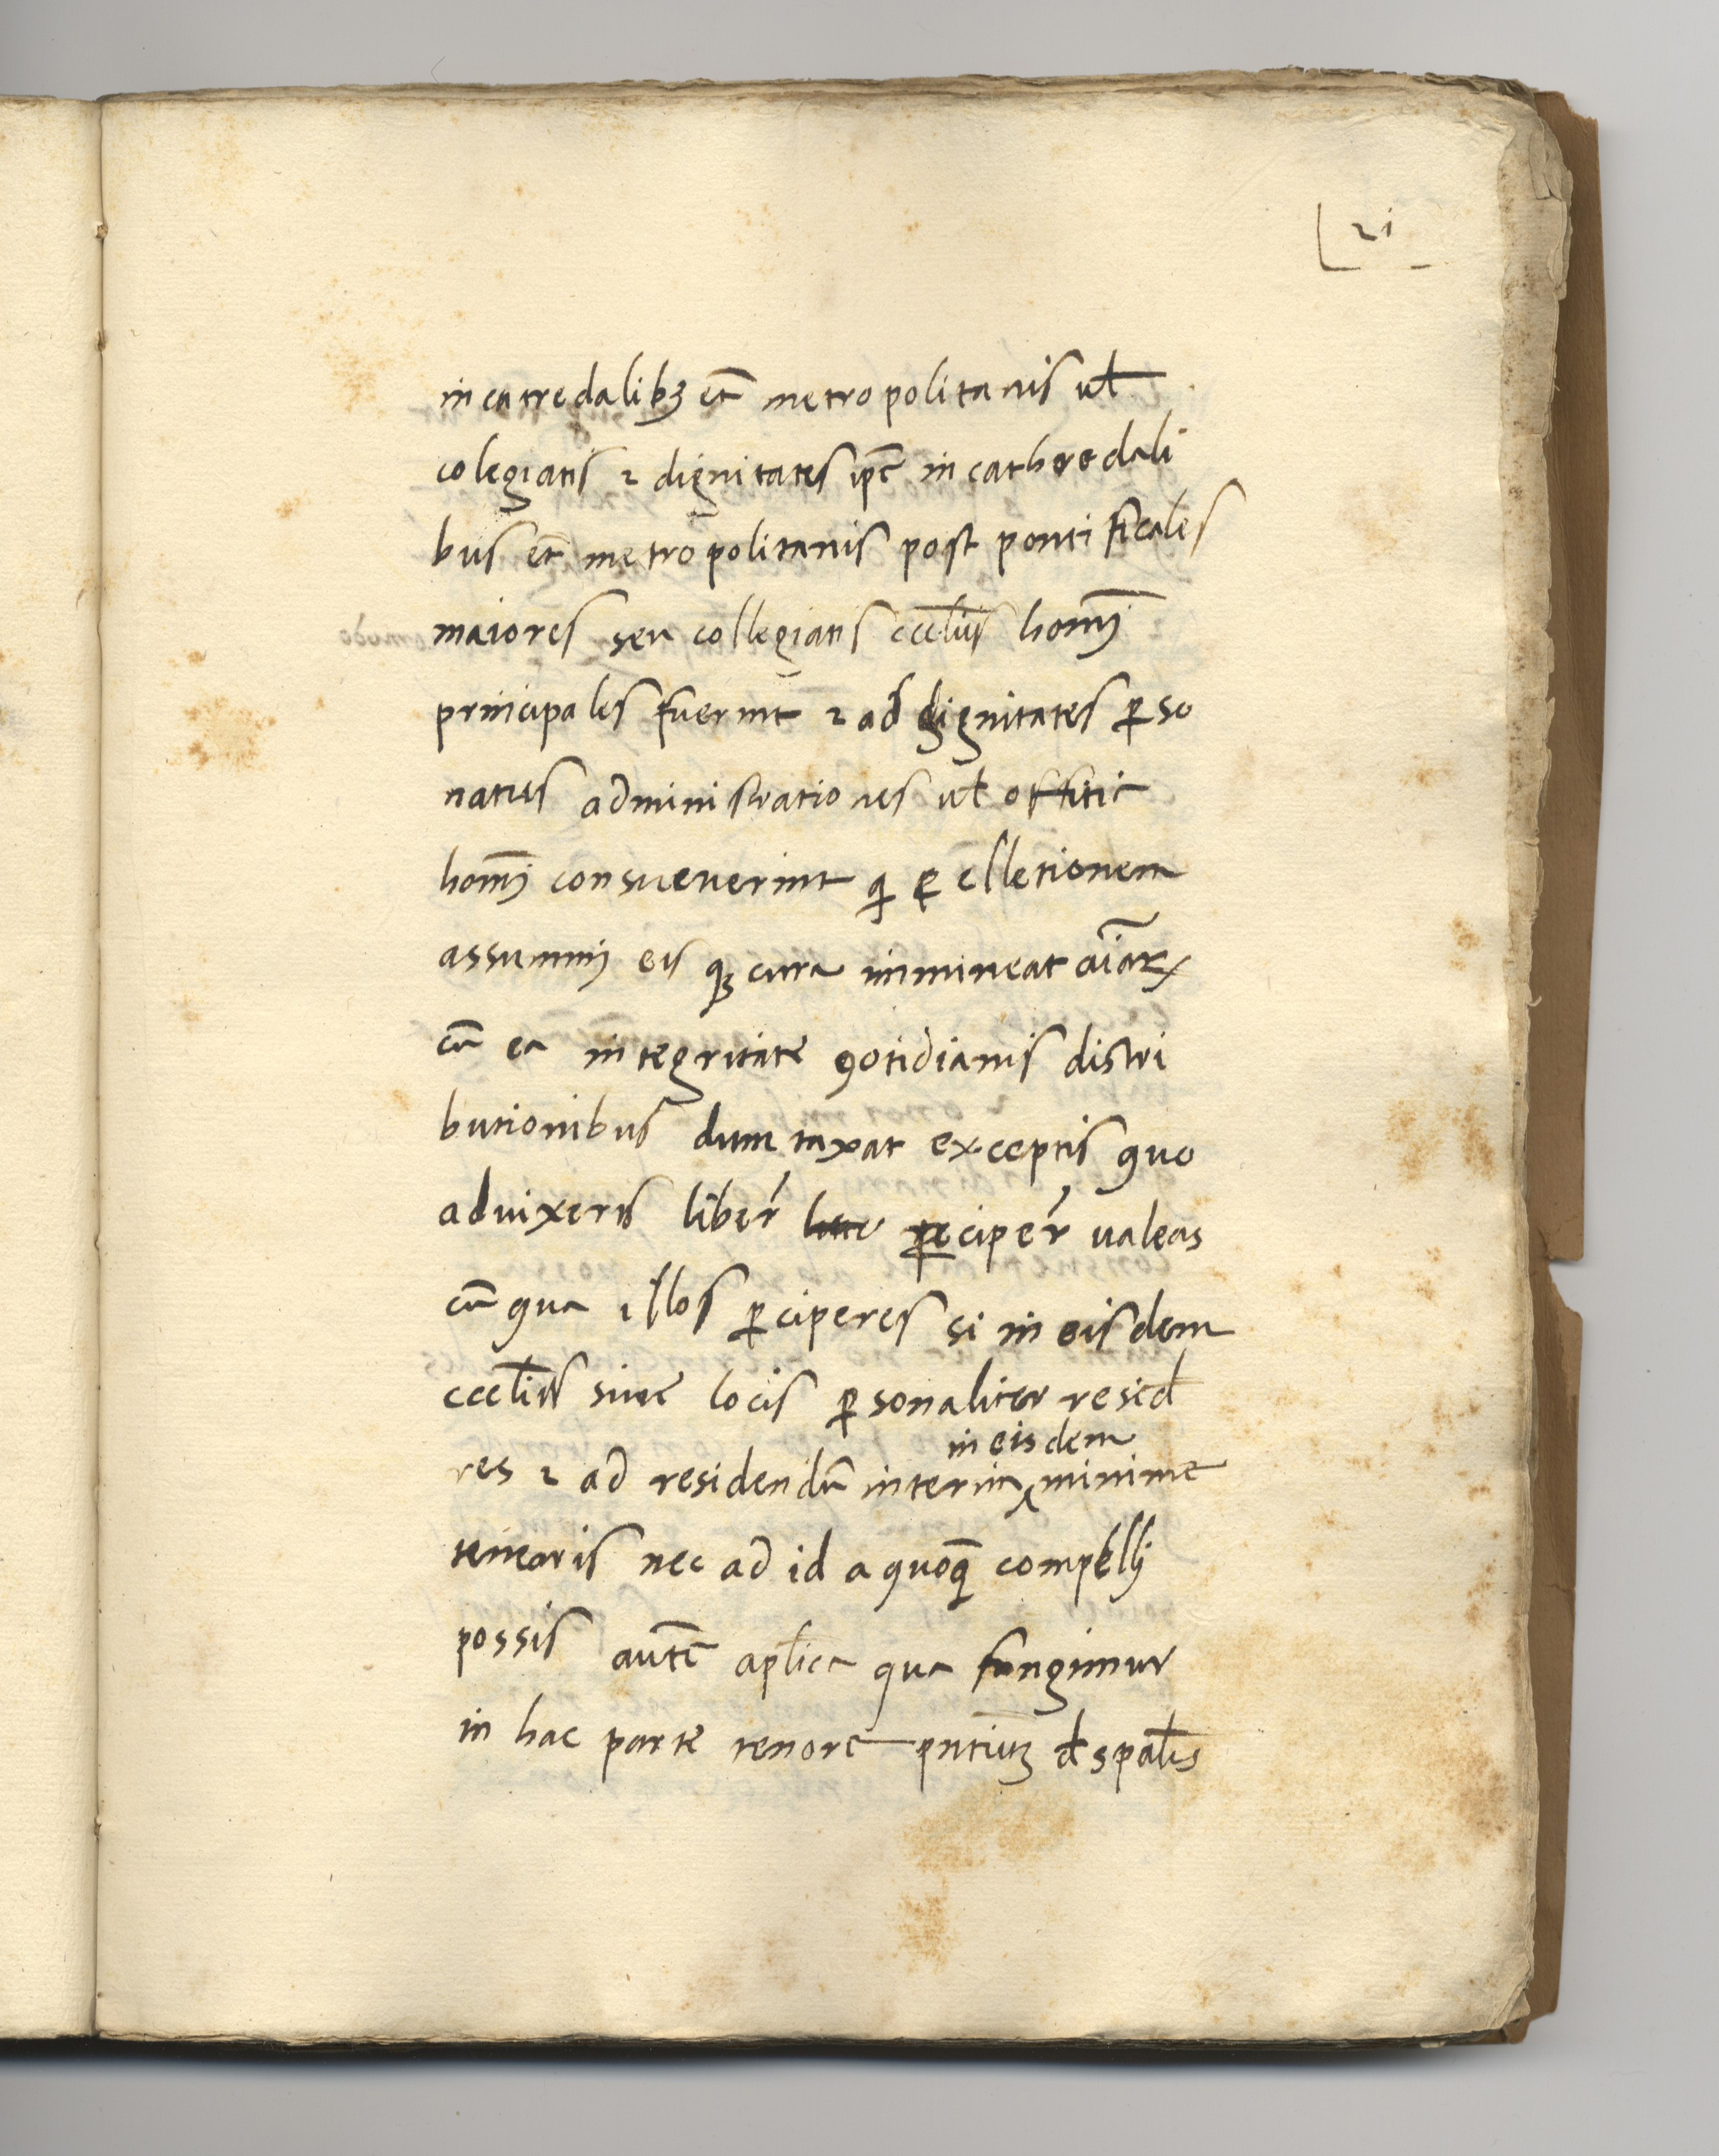 21
in catredalibꝫ et̃ metropolitanis ul̶
colegiatis ⁊ dignitates ip̃e in cathredali
bus et̃ metropolitanis post pontificales
maiores seu collegiatis eccl̃iis homĩ
principales fuerint ⁊ ad dignitates ꝑso
natus administrationes ul̶ offitie
homĩ consueuerint q̃ ꝑ elletionem
assummi eis qꝫ cura immineat aĩaꝝ
cũ ea integritate qotidianis distri
butionibus dum taxat exceptis quo
aduixeris liber̃ ꝑciper̃ ualeas
cũ qua illos ꝑciperes si in eisdem
eccl̃iis siue locis ꝑsonaliter resid
res ⁊ ad residendũ interim in eisdem minime
tenearis nec ad id a quoq̃ compellj
possis aut̃e apl̃ica qua fungimur
in hac parte tenore pñtiuꝫ d̶ spal̃is